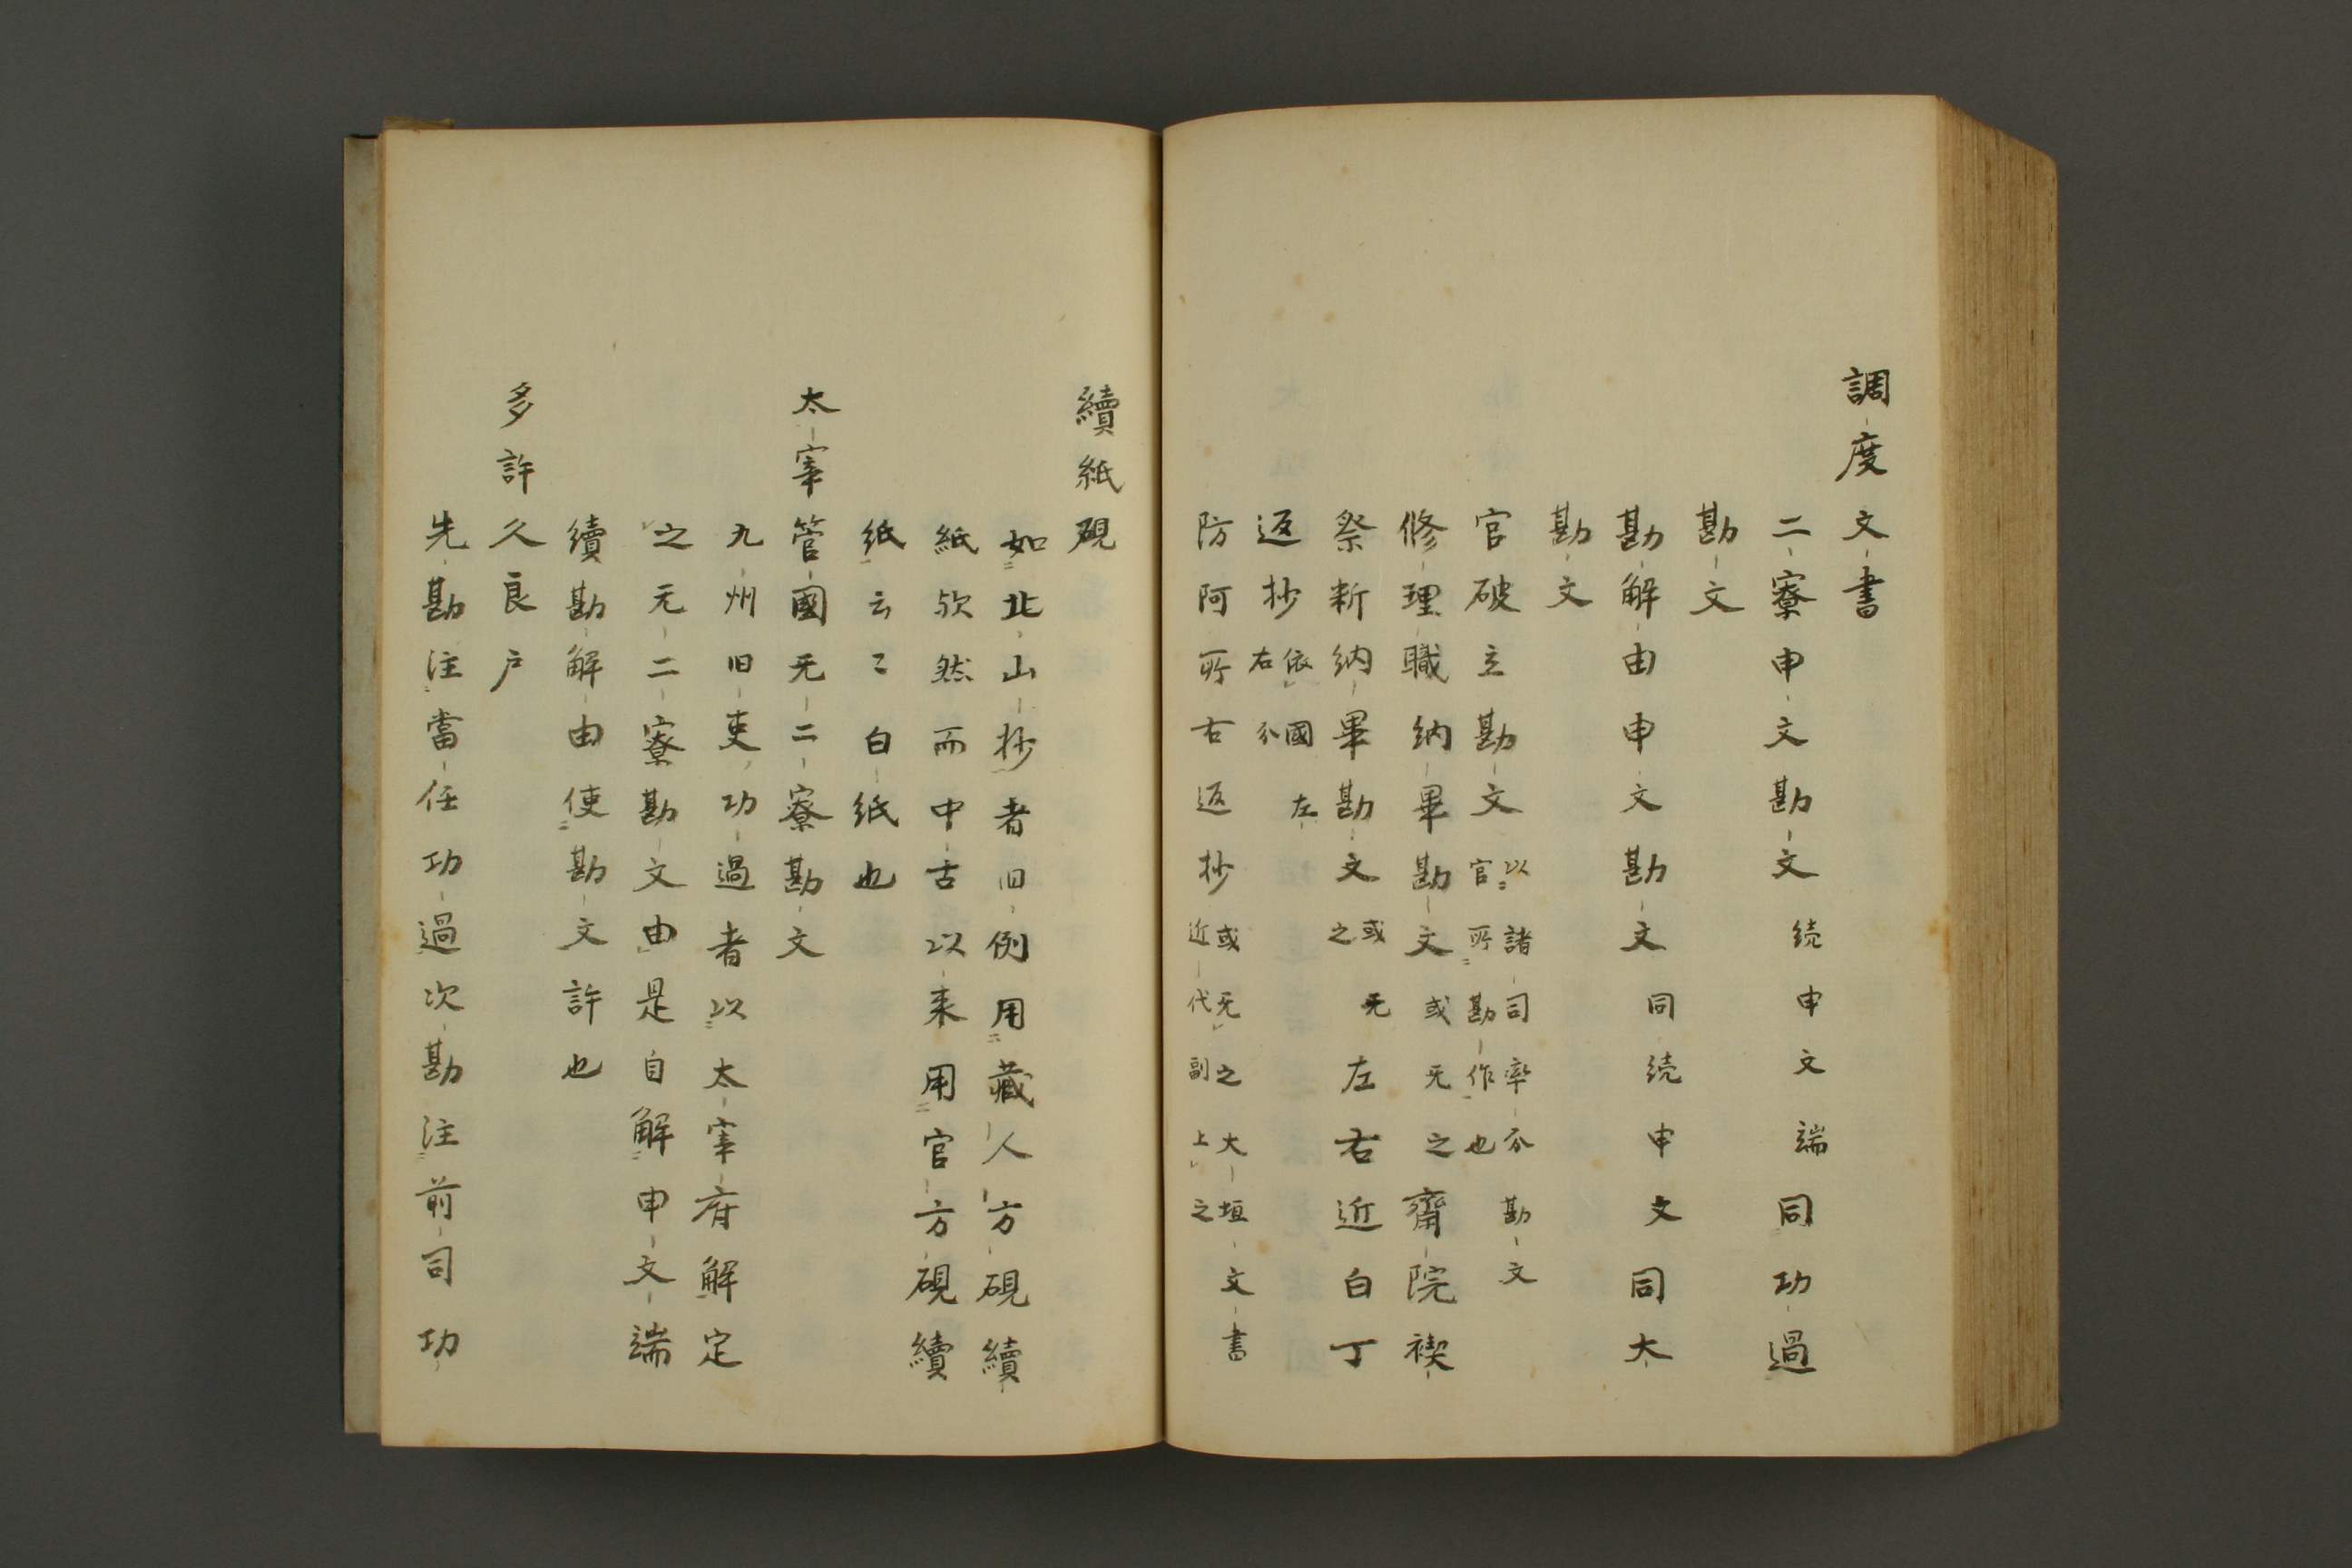 調度文書
二寮申文勘文 続申文端 同功過
勘文
勘解由申文勘文 同続申文 同大
勘文
官破立勘文 以諸司率分勘文
官所勘作也
修理職納畢勘文 或无之 齋院禊
祭料納畢勘文 或无
之 左右近白丁
返抄 依國左
右分
防河所右返抄 或无之大垣文書
近代副上之
續紙硯
如北山抄者旧例用藏人方硯續
紙欤然而中古以来用官方硯續
紙云〻白紙也
太宰管國无二寮勘文
九州旧吏功過者以太宰府解定
之无二寮勘文由是自解申文端
續勘解由使勘文許也
多許久良户
先勘注當任功過次勘注前司功